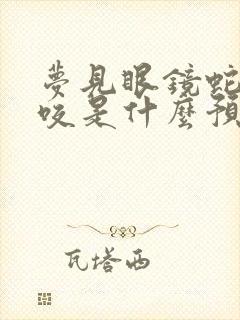 夢見眼鏡蛇
咬是什麼預
瓦塔西